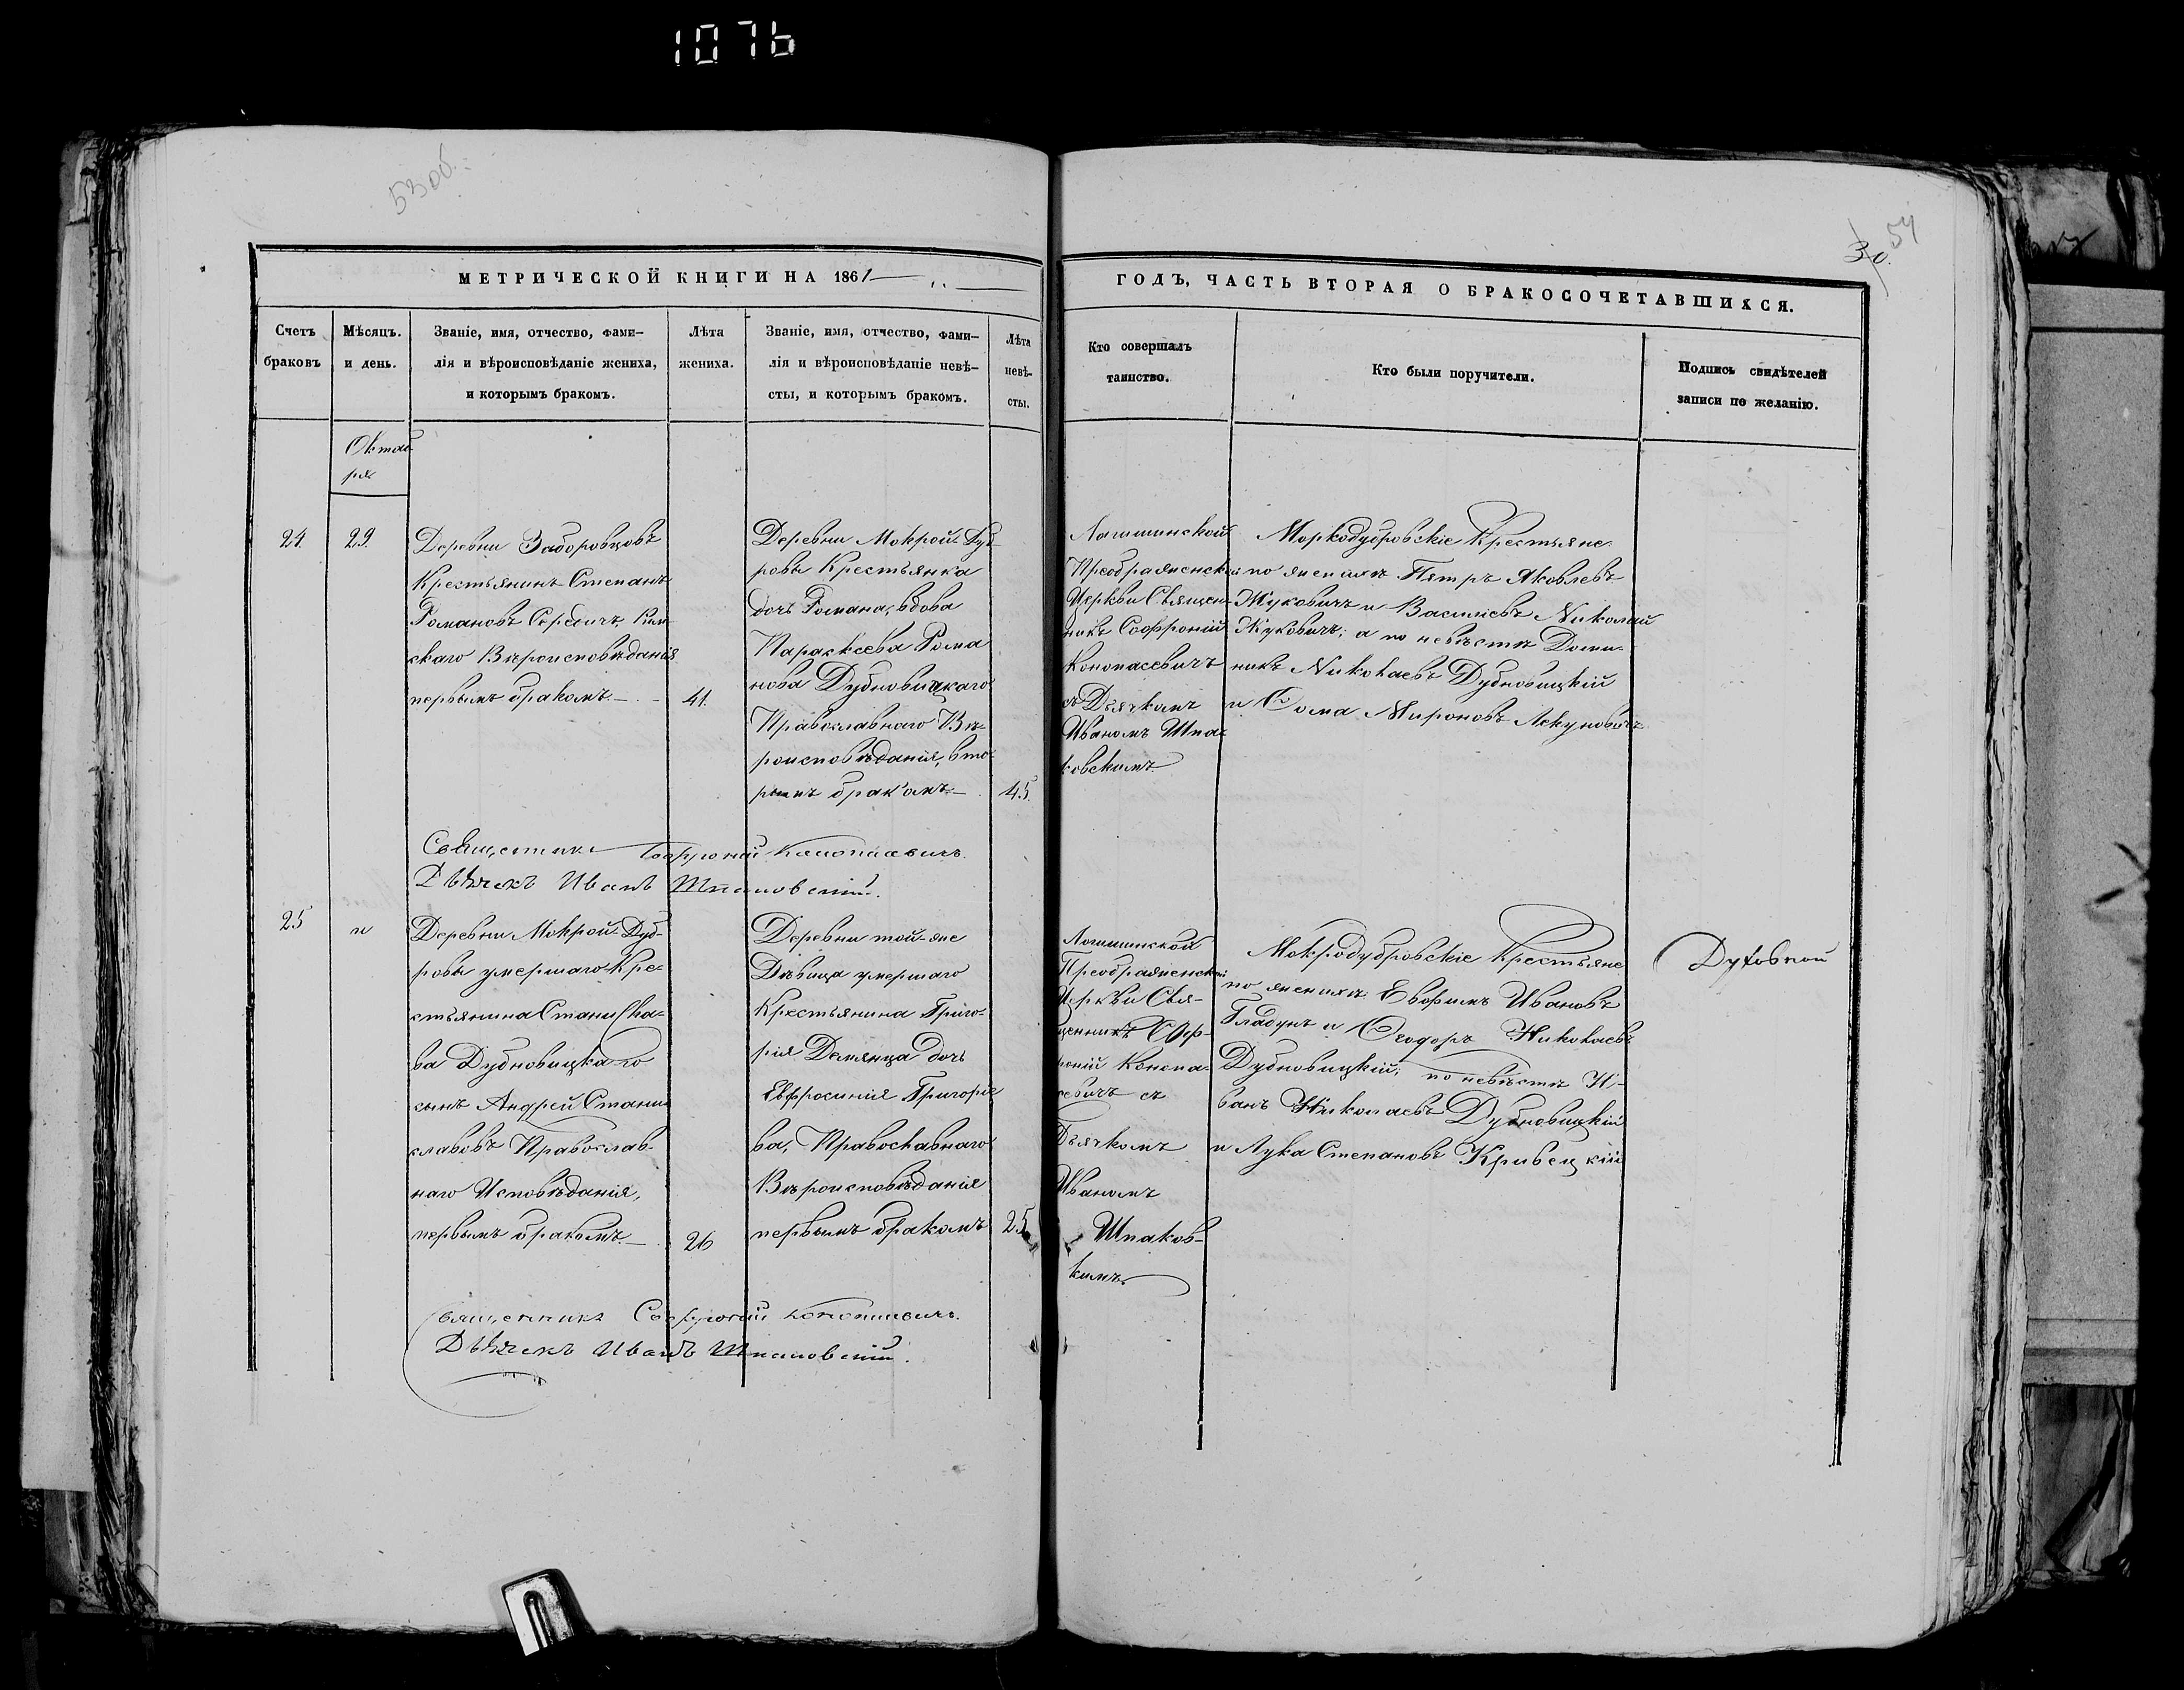 1076
53 об.
30. 54
МЕТРИЧЕСКОЙ КНИГИ НА 1861
ГОДЪ, ЧАСТЬ ВТОРАЯ О БРАКОСОЧЕТАВШИХСЯ.
Счетъ
браковъ
Мѣсяцъ.
и день.
Званіе, имя, отчество, фами-
лія и вѣроисповѣданіе жениха,
и которымъ бракомъ.
Лѣта
жениха.
Званіе, имя, отчество, фами-
лія и вѣроисповѣданіе невѣ-
сты, и которымъ бракомъ.
Лѣта
невѣ-
сты.
Кто совершалъ
таинство.
Кто были поручители.
Подпись свидѣтелей
записи по желанію.
Октяб
ря
24.
29.
Деревни Заборовцовъ
Крестьянинъ Степанъ
Романовъ Середичъ, Рим-
скаго Вѣроисповѣданія
первымъ бракомъ
41.
Деревни Мокрой-Дуб-
ровы Крестьянка
дочь Романа, вдова
Параскева Рома
нова Дубновицкаго
Православнаго Вѣ-
роисповѣданія, вто-
рымъ бракомъ
45.
Логишинской
Преображенской
Церкви Священ-
никъ Софроній
Конопасевичъ
съ Дьячкомъ
Иваномъ Шпа-
ковскимъ
Моркодубровскіе Крестьяне
по женихѣ Пятръ Яковлевъ
Жуковичъ и Василіевъ Николай
Жуковичъ; а по невѣстѣ Доми-
никъ Николаевъ Дубновицкій
и Ѳома Мироновъ
Священникъ Софроній Конопасевичъ.
Дьячекъ Иванъ Шпаковскій.
25
и
Деревни Мокрой-Дуб-
ровы умершаго Кре-
стьянина Станисла-
ва Дубновицкаго
сынъ Андрей Стани
славовъ Православ-
наго Исповѣданія,
первымъ бракомъ
26
Деревни той-же
Дѣвица умершаго
Крестьянина Григо-
рія Демянца дочь
Евфросинія Григорie
ва, Православнаго
Вѣроисповѣданія
первымъ бракомъ
25
Логишинской
Преображенской
Церкви Свя-
щенникъ Соф-
роній Конопа-
севичъ съ
Дьячкомъ
Иваномъ
Шпаков-
кимъ
Мокродубровскіе Крестьяне
по женихѣ Евфимъ Ивановъ
Гладунъ и Ѳеодоръ Николаевъ
Дубновицкій; по невѣстѣ И-
ванъ Николаевъ Дубновицкій
и Лука Степановъ Кривецкій
Духовной
Священникъ Софроній Конопасевичъ.
Дьячекъ Иванъ Шпаковскій.